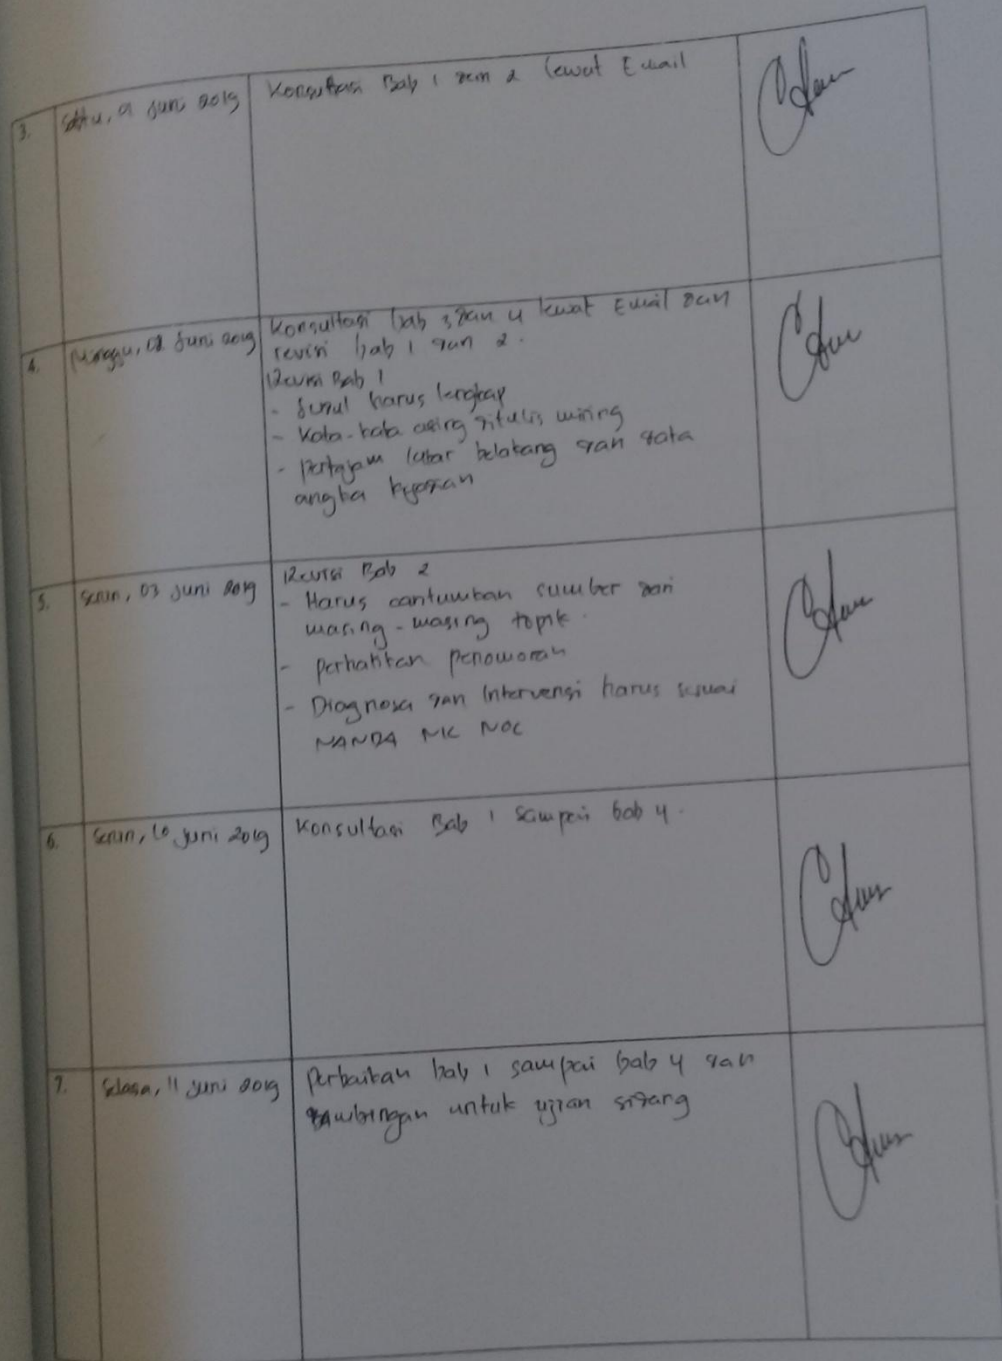 3. Sabtu, 01 Juni 2019 Konsultasi Bab 1 dan 2 lewat Email
4. Minggu, 02 Juni 2019 Konsultasi bab 3 dan 4 lewat Email dan
revisi bab 1 dan 2.
Revisi Bab 1
- Judul harus lengkap
- Kata-kata asing ditulis miring
- Pertajam latar belakang dan data
angka kejadian
5. Senin, 03 Juni 2019 Revisi Bab 2
- Harus cantumkan sumber dari
masing-masing topik.
- Perhatikan penomoran
- Diagnosa dan Intervensi harus sesuai
NANDA NIC NOC
6. Senin, 10 Juni 2019 Konsultasi Bab 1 sampai bab 4.
7. Selasa, 11 Juni 2019 Perbaikan bab 1 sampai bab 4 dan
bimbingan untuk ujian sidang